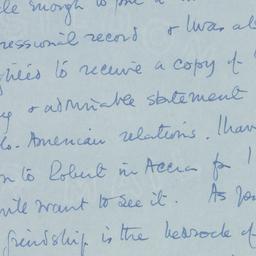 enough to
ressional record & I was
to receive a copy of
& admirable statement
American relations. I have
to Robert in Accra for
want to see it. As you
friendship is the bedrock of